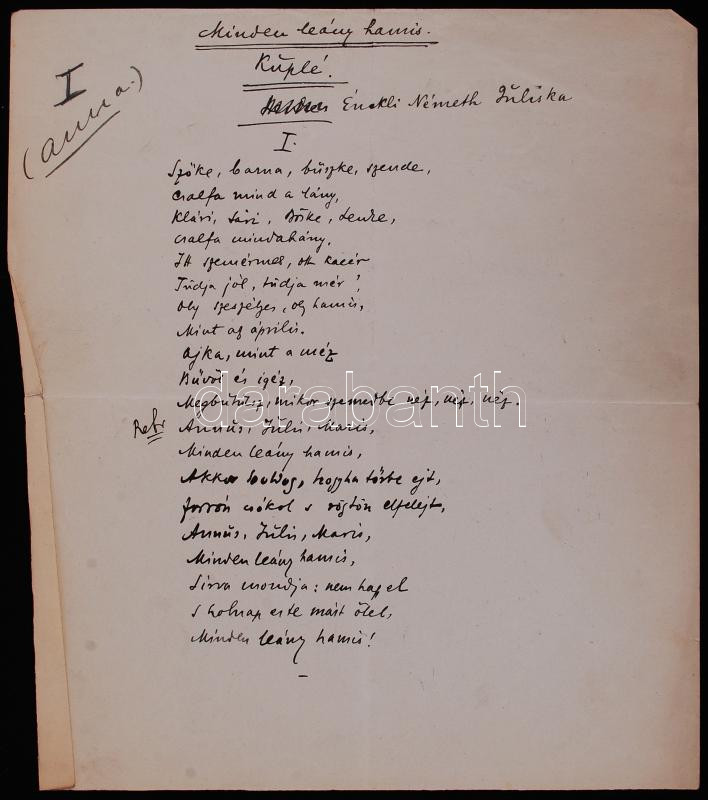 Minden leány hamis.
Kuplé.
I
(anna.)
Énekli Németh Juliska
I.
Szőke, barna, büszke, szende,
Csalfa mind a lány,
Klári, Sári, Böske, Lenke,
Csalfa mindahány.
Itt szemérmes, ott kacér
Tudja jól, tudja mér?
Oly szeszélyes, oly hamis,
Mint az április.
Ajka, mint a méz
Bűvöl és igéz,
Megbűvölsz, mikor szemedbe néz, néz, néz.
Refr
Annus, Julis, Maris,
Minden leány hamis,
Akkor boldog, hogyha tőrbe ejt,
Forrón csókol s rögtön elfelejt,
Annus, Julis, Maris,
Minden leány hamis,
Sirva mondja: nem hagy el
S holnap este mást ölel,
Minden leány hamis!
darabanth